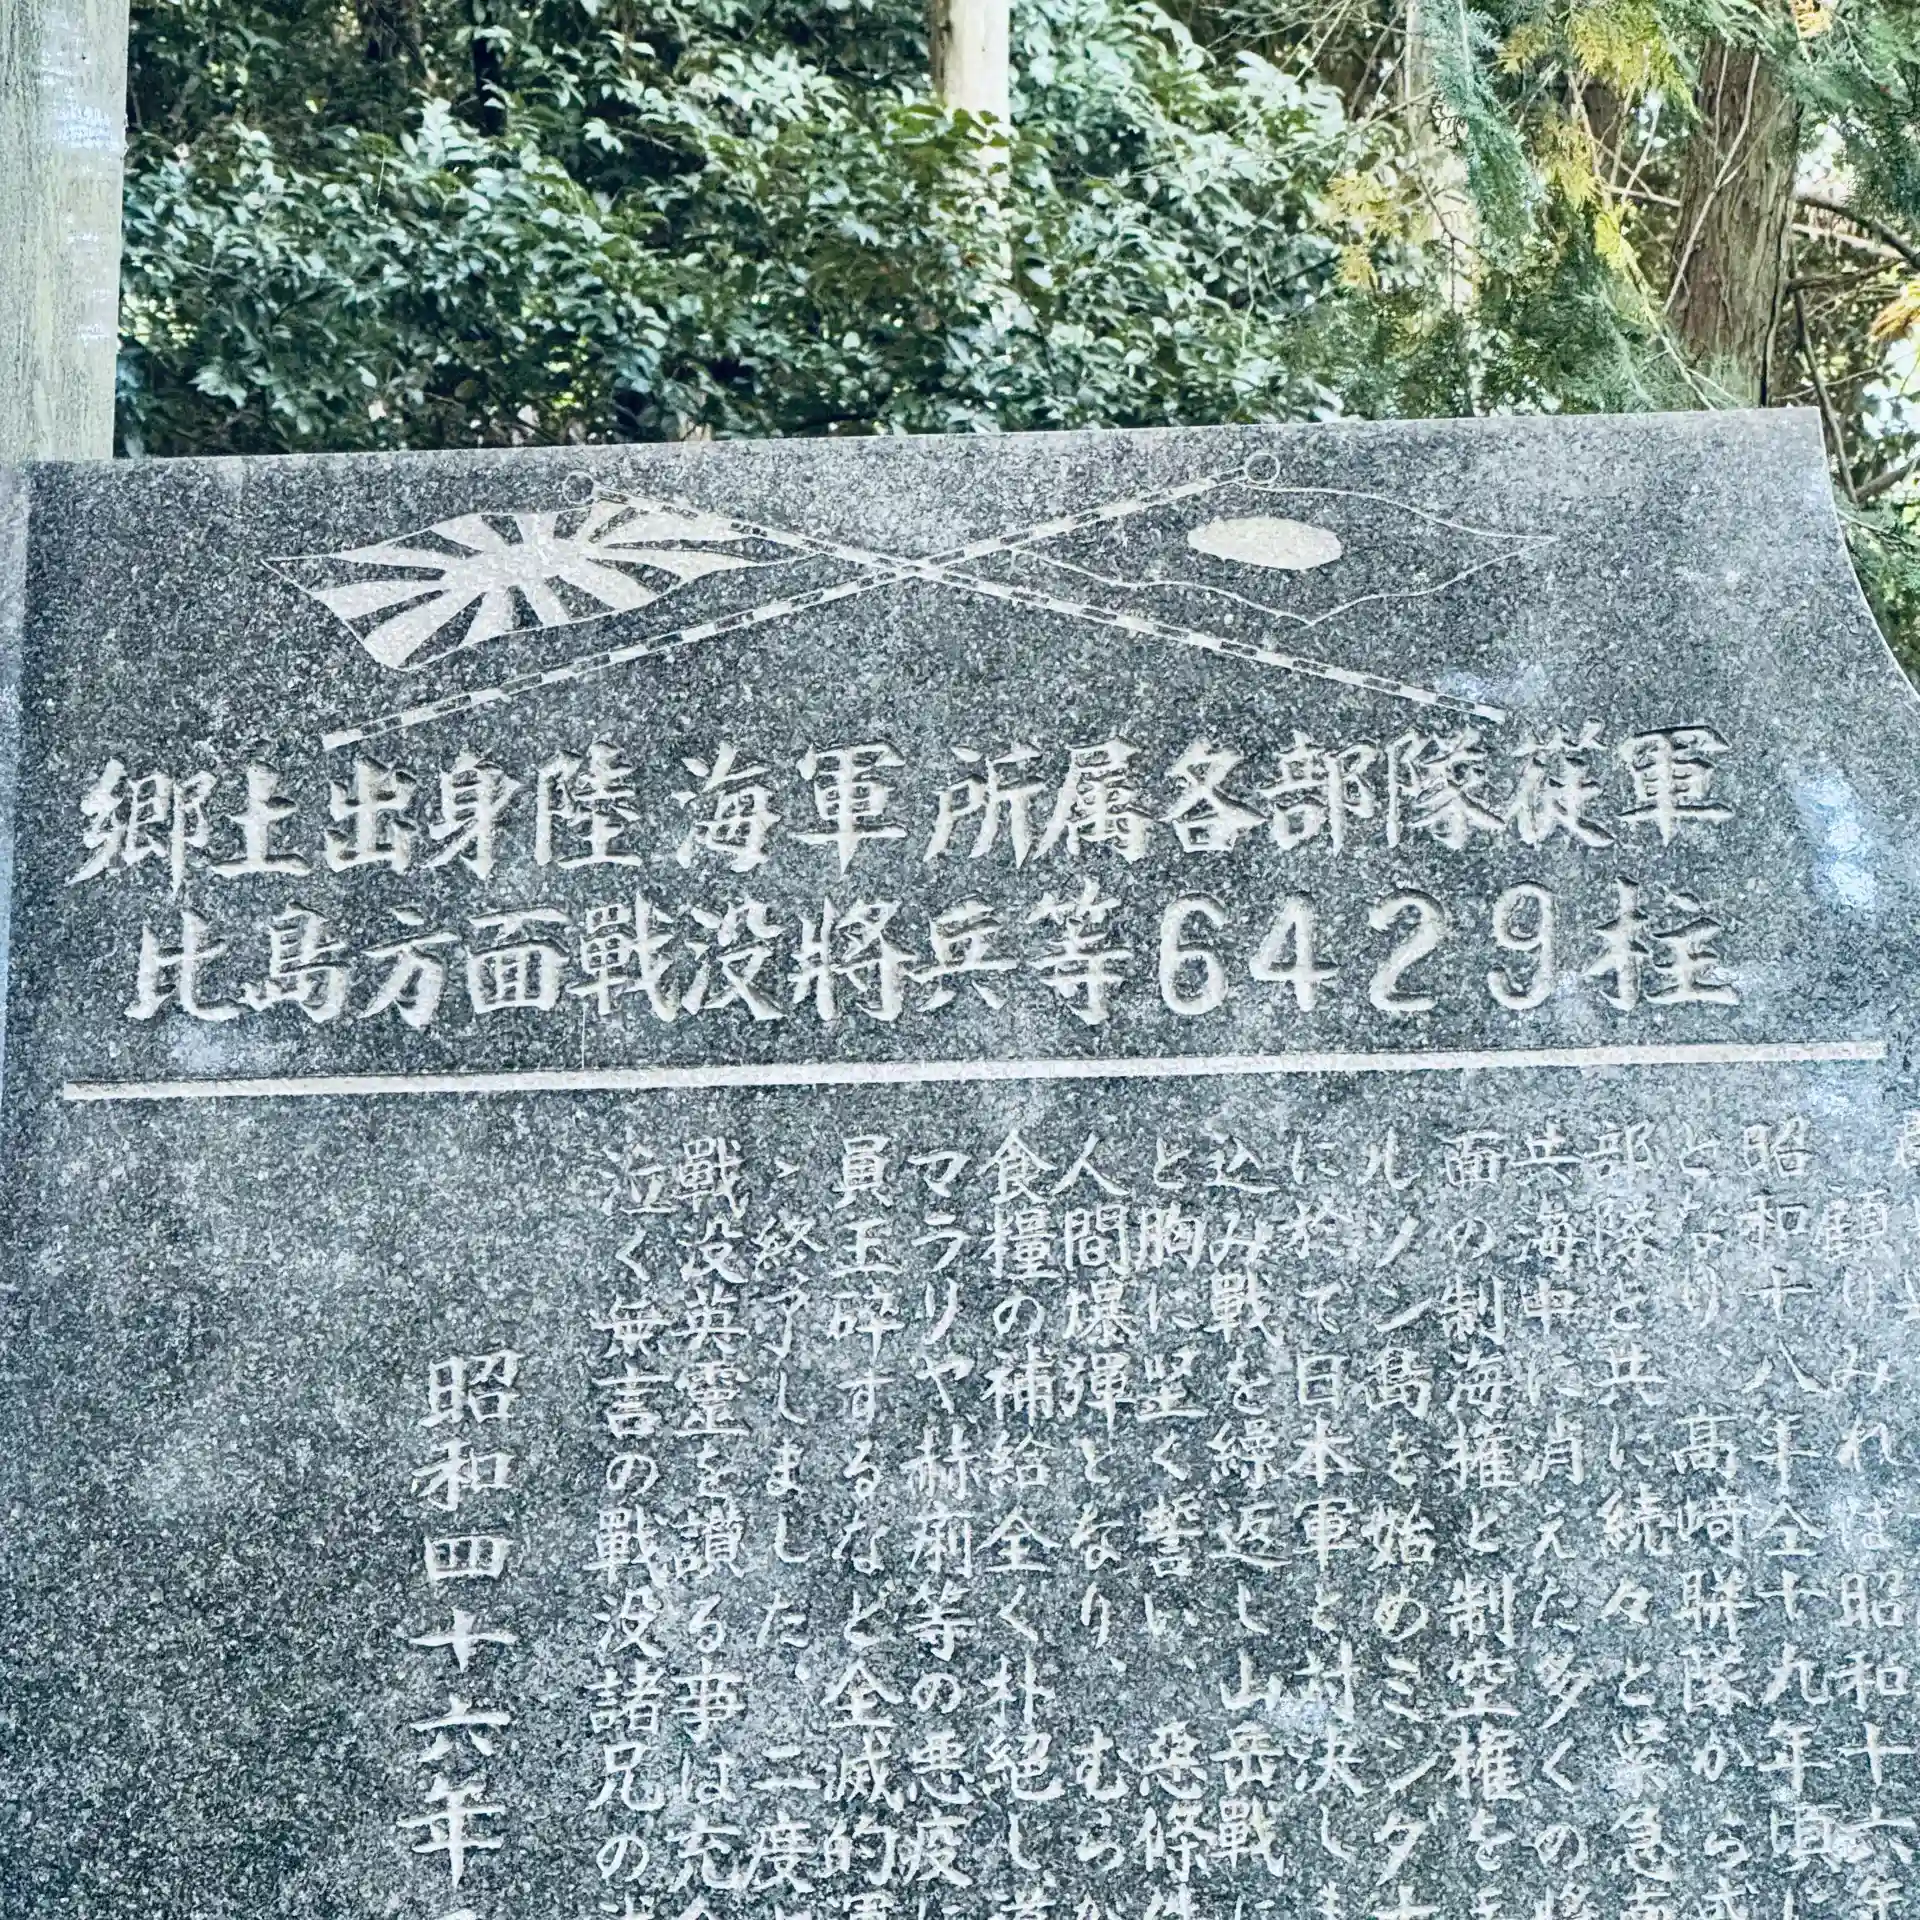 郷土出身陸海軍所属各部隊従軍
比島方面戰没將兵等6429柱
顧りみれば昭和十六年
昭和十八年全十九年頃
となり、高崎聯隊から
部隊と共に続々と緊急
共海中に消えた多くの
面の制海権と制空権を
ルソン島を始めミンダナ
に於て日本軍と対決し
込み戰を繰返し山岳戰
と胸に堅く誓い、悪條件
人間爆彈となり、むら
食糧の補給全く朴絕し
マラリヤ赫痢等の悪疫に
員玉砕するなど全滅的
ゝ終了しました、二度と
戰没英靈を讃る事は充
泣く無言の戰没諸兄の
昭和四十六年